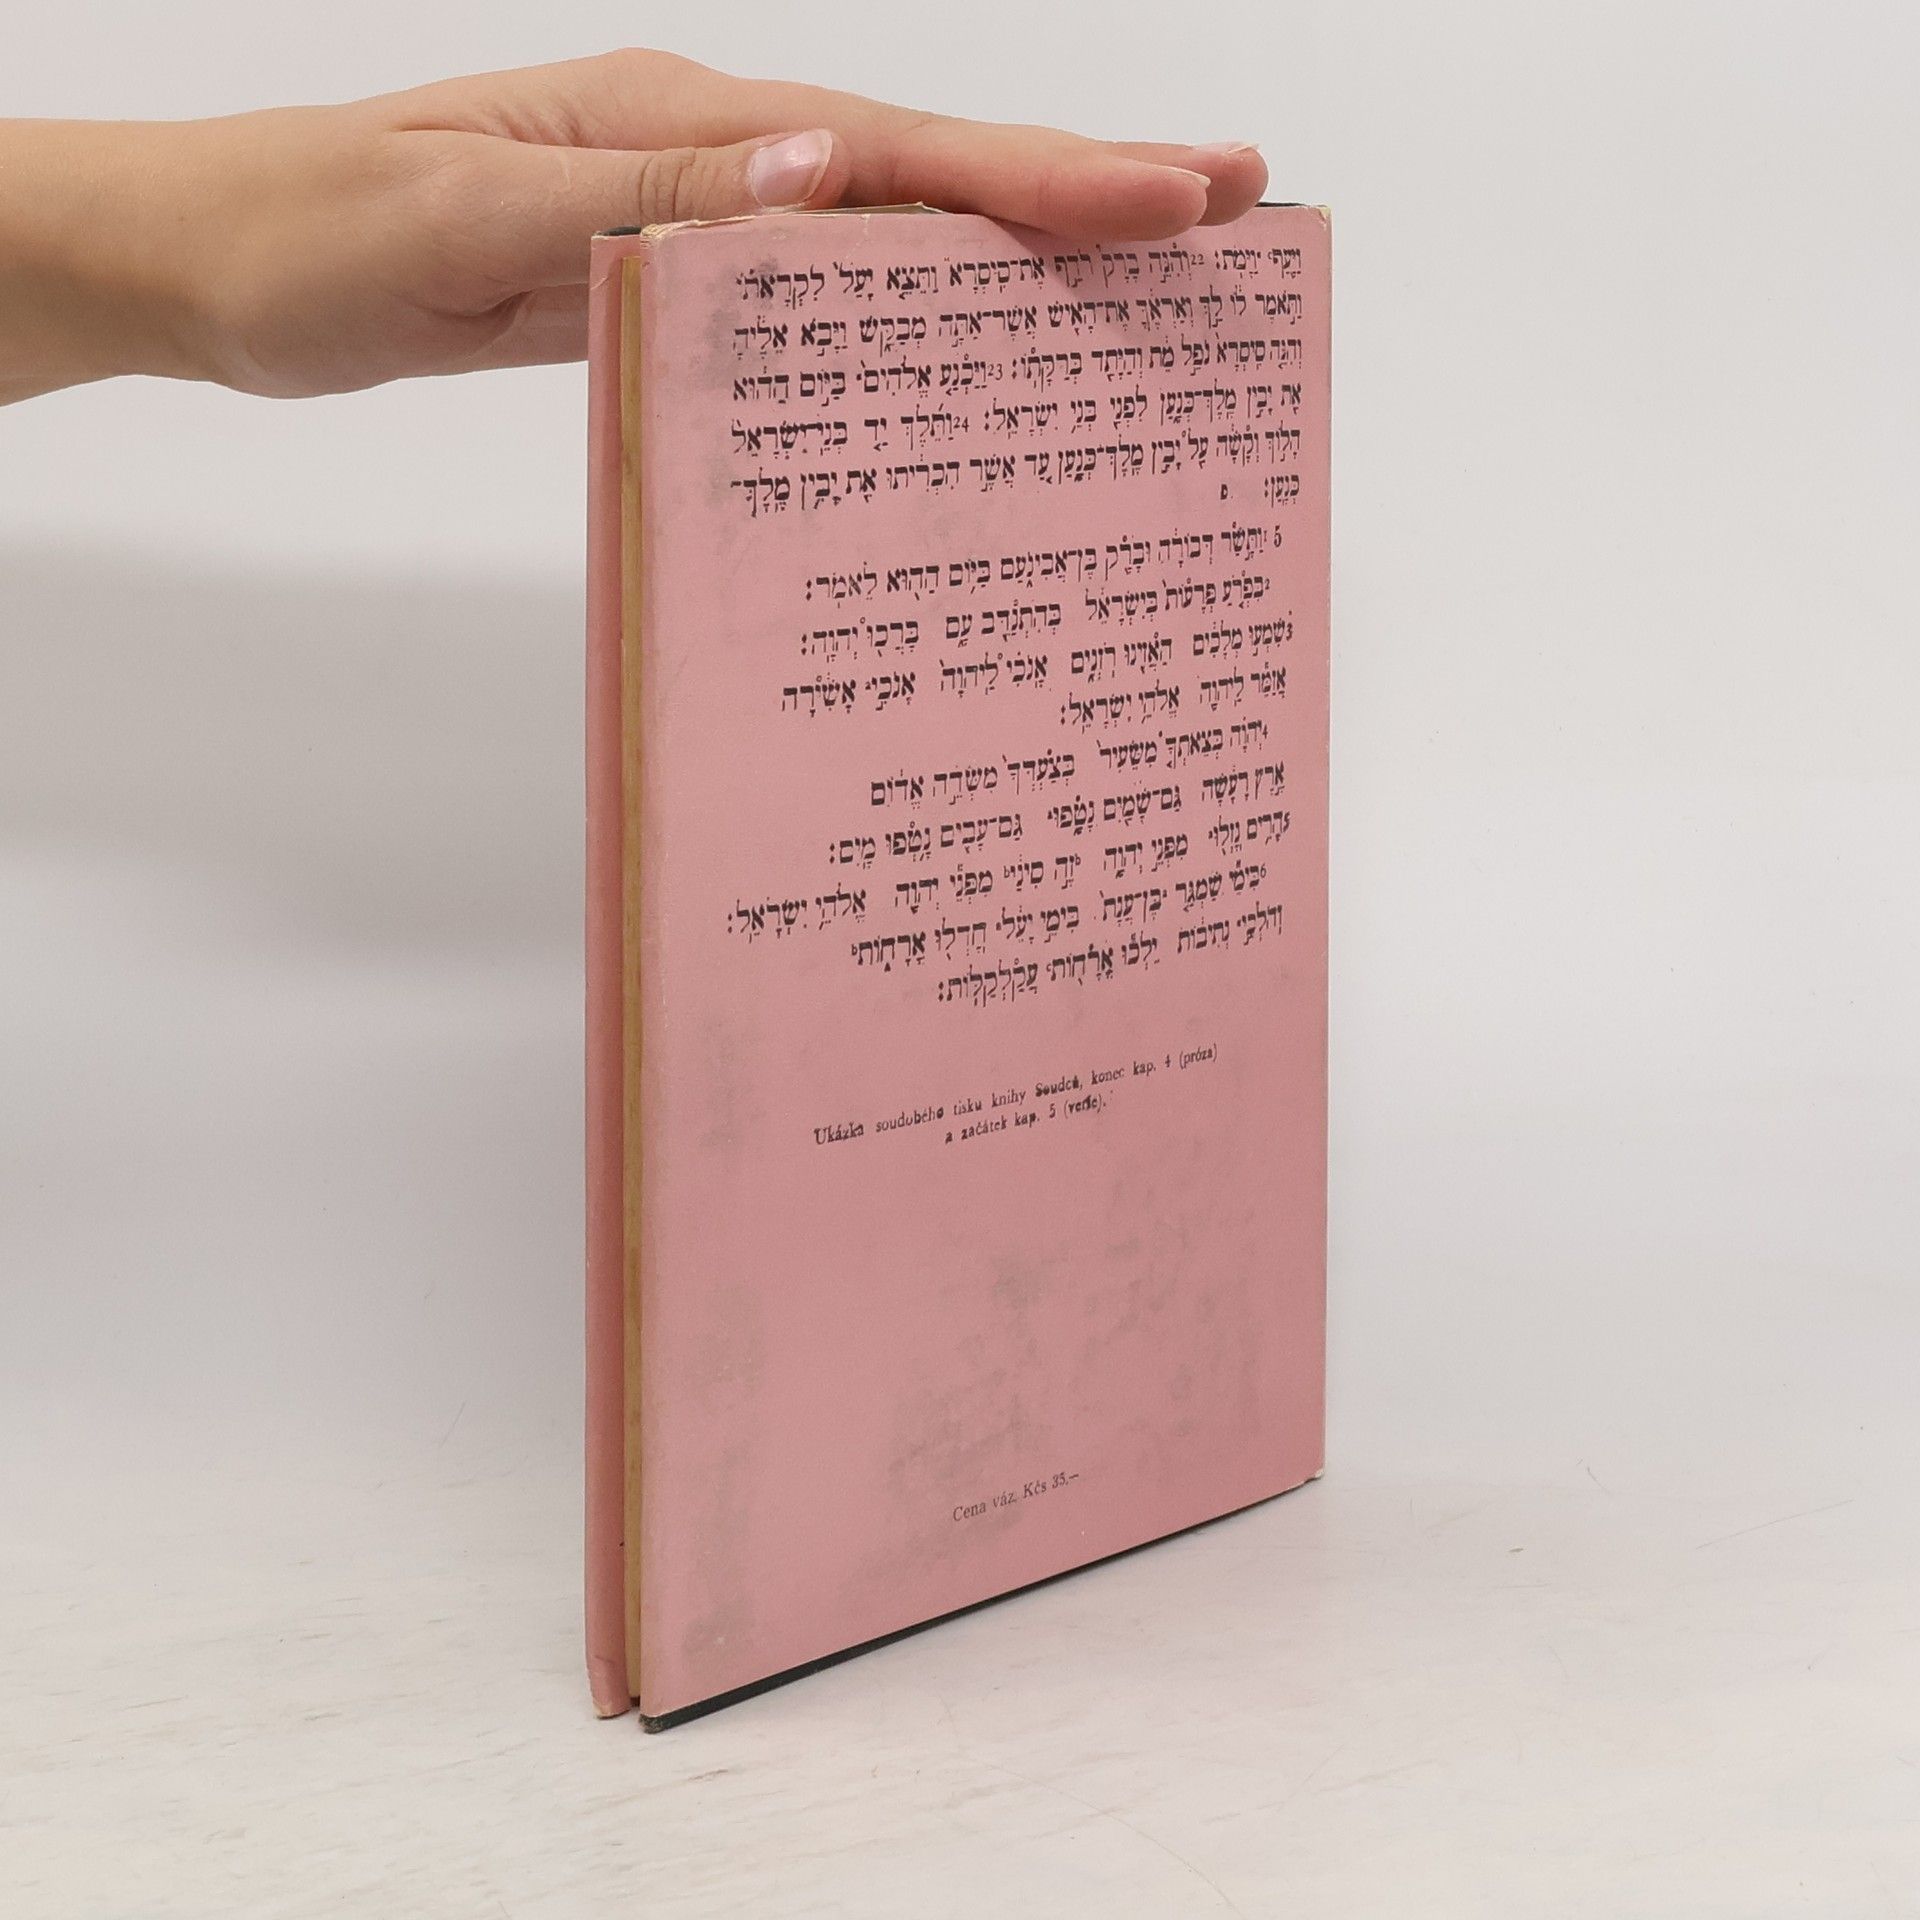 וַיָּ֖עַף וַיָּמֹֽת׃ 22וְהִנֵּ֣ה בָרָק֮ רֹדֵ֣ף אֶת־סִֽיסְרָא֒ וַתֵּצֵ֤א יָעֵל֙ לִקְרָאת֔וֹ
וַתֹּ֣אמֶר ל֔וֹ לֵ֣ךְ וְאַרְאֶ֔ךָּ אֶת־הָאִ֖ישׁ אֲשֶׁר־אַתָּ֣ה מְבַקֵּ֑שׁ וַיָּבֹ֣א אֵלֶ֔יהָ
וְהִנֵּ֤ה סִֽיסְרָא֙ נֹפֵ֣ל מֵ֔ת וְהַיָּתֵ֖ד בְּרַקָּתֽוֹ׃ 23וַיַּכְנַ֤ע אֱלֹהִים֙ בַּיּ֣וֹם הַה֔וּא
אֵ֖ת יָבִ֣ין מֶֽלֶךְ־כְּנָ֑עַן לִפְנֵ֖י בְּנֵ֥י יִשְׂרָאֵֽל׃ 24וַתֵּ֜לֶךְ יַ֤ד בְּנֵֽי־יִשְׂרָאֵל֙
הָל֣וֹךְ וְקָשָׁ֔ה עַ֖ל יָבִ֣ין מֶֽלֶךְ־כְּנָ֑עַן עַ֚ד אֲשֶׁ֣ר הִכְרִ֔יתוּ אֵ֖ת יָבִ֥ין מֶֽלֶךְ־
כְּנָֽעַן׃ פ
5 1וַתָּ֣שַׁר דְּבוֹרָ֔ה וּבָרָ֖ק בֶּן־אֲבִינֹ֑עַם בַּיּ֥וֹם הַה֖וּא לֵאמֹֽר׃
2בִּפְרֹ֤עַ פְּרָעוֹת֙ בְּיִשְׂרָאֵ֔ל בְּהִתְנַדֵּ֖ב עָ֑ם בָּרֲכ֖וּ יְהוָֽה׃
3שִׁמְע֣וּ מְלָכִ֔ים הַאֲזִ֖ינוּ רֹֽזְנִ֑ים אָֽנֹכִ֗י לַֽיהוָה֙ אָנֹכִ֣י אָשִׁ֔ירָה
אֲזַמֵּ֕ר לַֽיהוָ֖ה אֱלֹהֵ֥י יִשְׂרָאֵֽל׃
4יְהוָ֗ה בְּצֵאתְךָ֤ מִשֵּׂעִיר֙ בְּצַעְדְּךָ֙ מִשְּׂדֵ֣ה אֱד֔וֹם
אֶ֣רֶץ רָעָ֔שָׁה גַּם־שָׁמַ֖יִם נָטָ֑פוּ גַּם־עָבִ֖ים נָ֥טְפוּ מָֽיִם׃
5הָרִ֥ים נָזְל֖וּ מִפְּנֵ֣י יְהוָ֑ה זֶ֣ה סִינַ֔י מִפְּנֵ֕י יְהוָ֖ה אֱלֹהֵ֥י יִשְׂרָאֵֽל׃
6בִּימֵ֞י שַׁמְגַּ֤ר בֶּן־עֲנָת֙ בִּימֵ֣י יָעֵ֔ל חָדְל֖וּ אֳרָח֑וֹת
וְהֹלְכֵ֣י נְתִיב֔וֹת יֵלְכ֕וּ אֳרָח֖וֹת עֲקַלְקַלּֽוֹת׃
Ukázka soudobého tisku knihy Soudců, konec kap. 4 (próza)
a začátek kap. 5 (verše).
Cena váz. Kčs 35,—